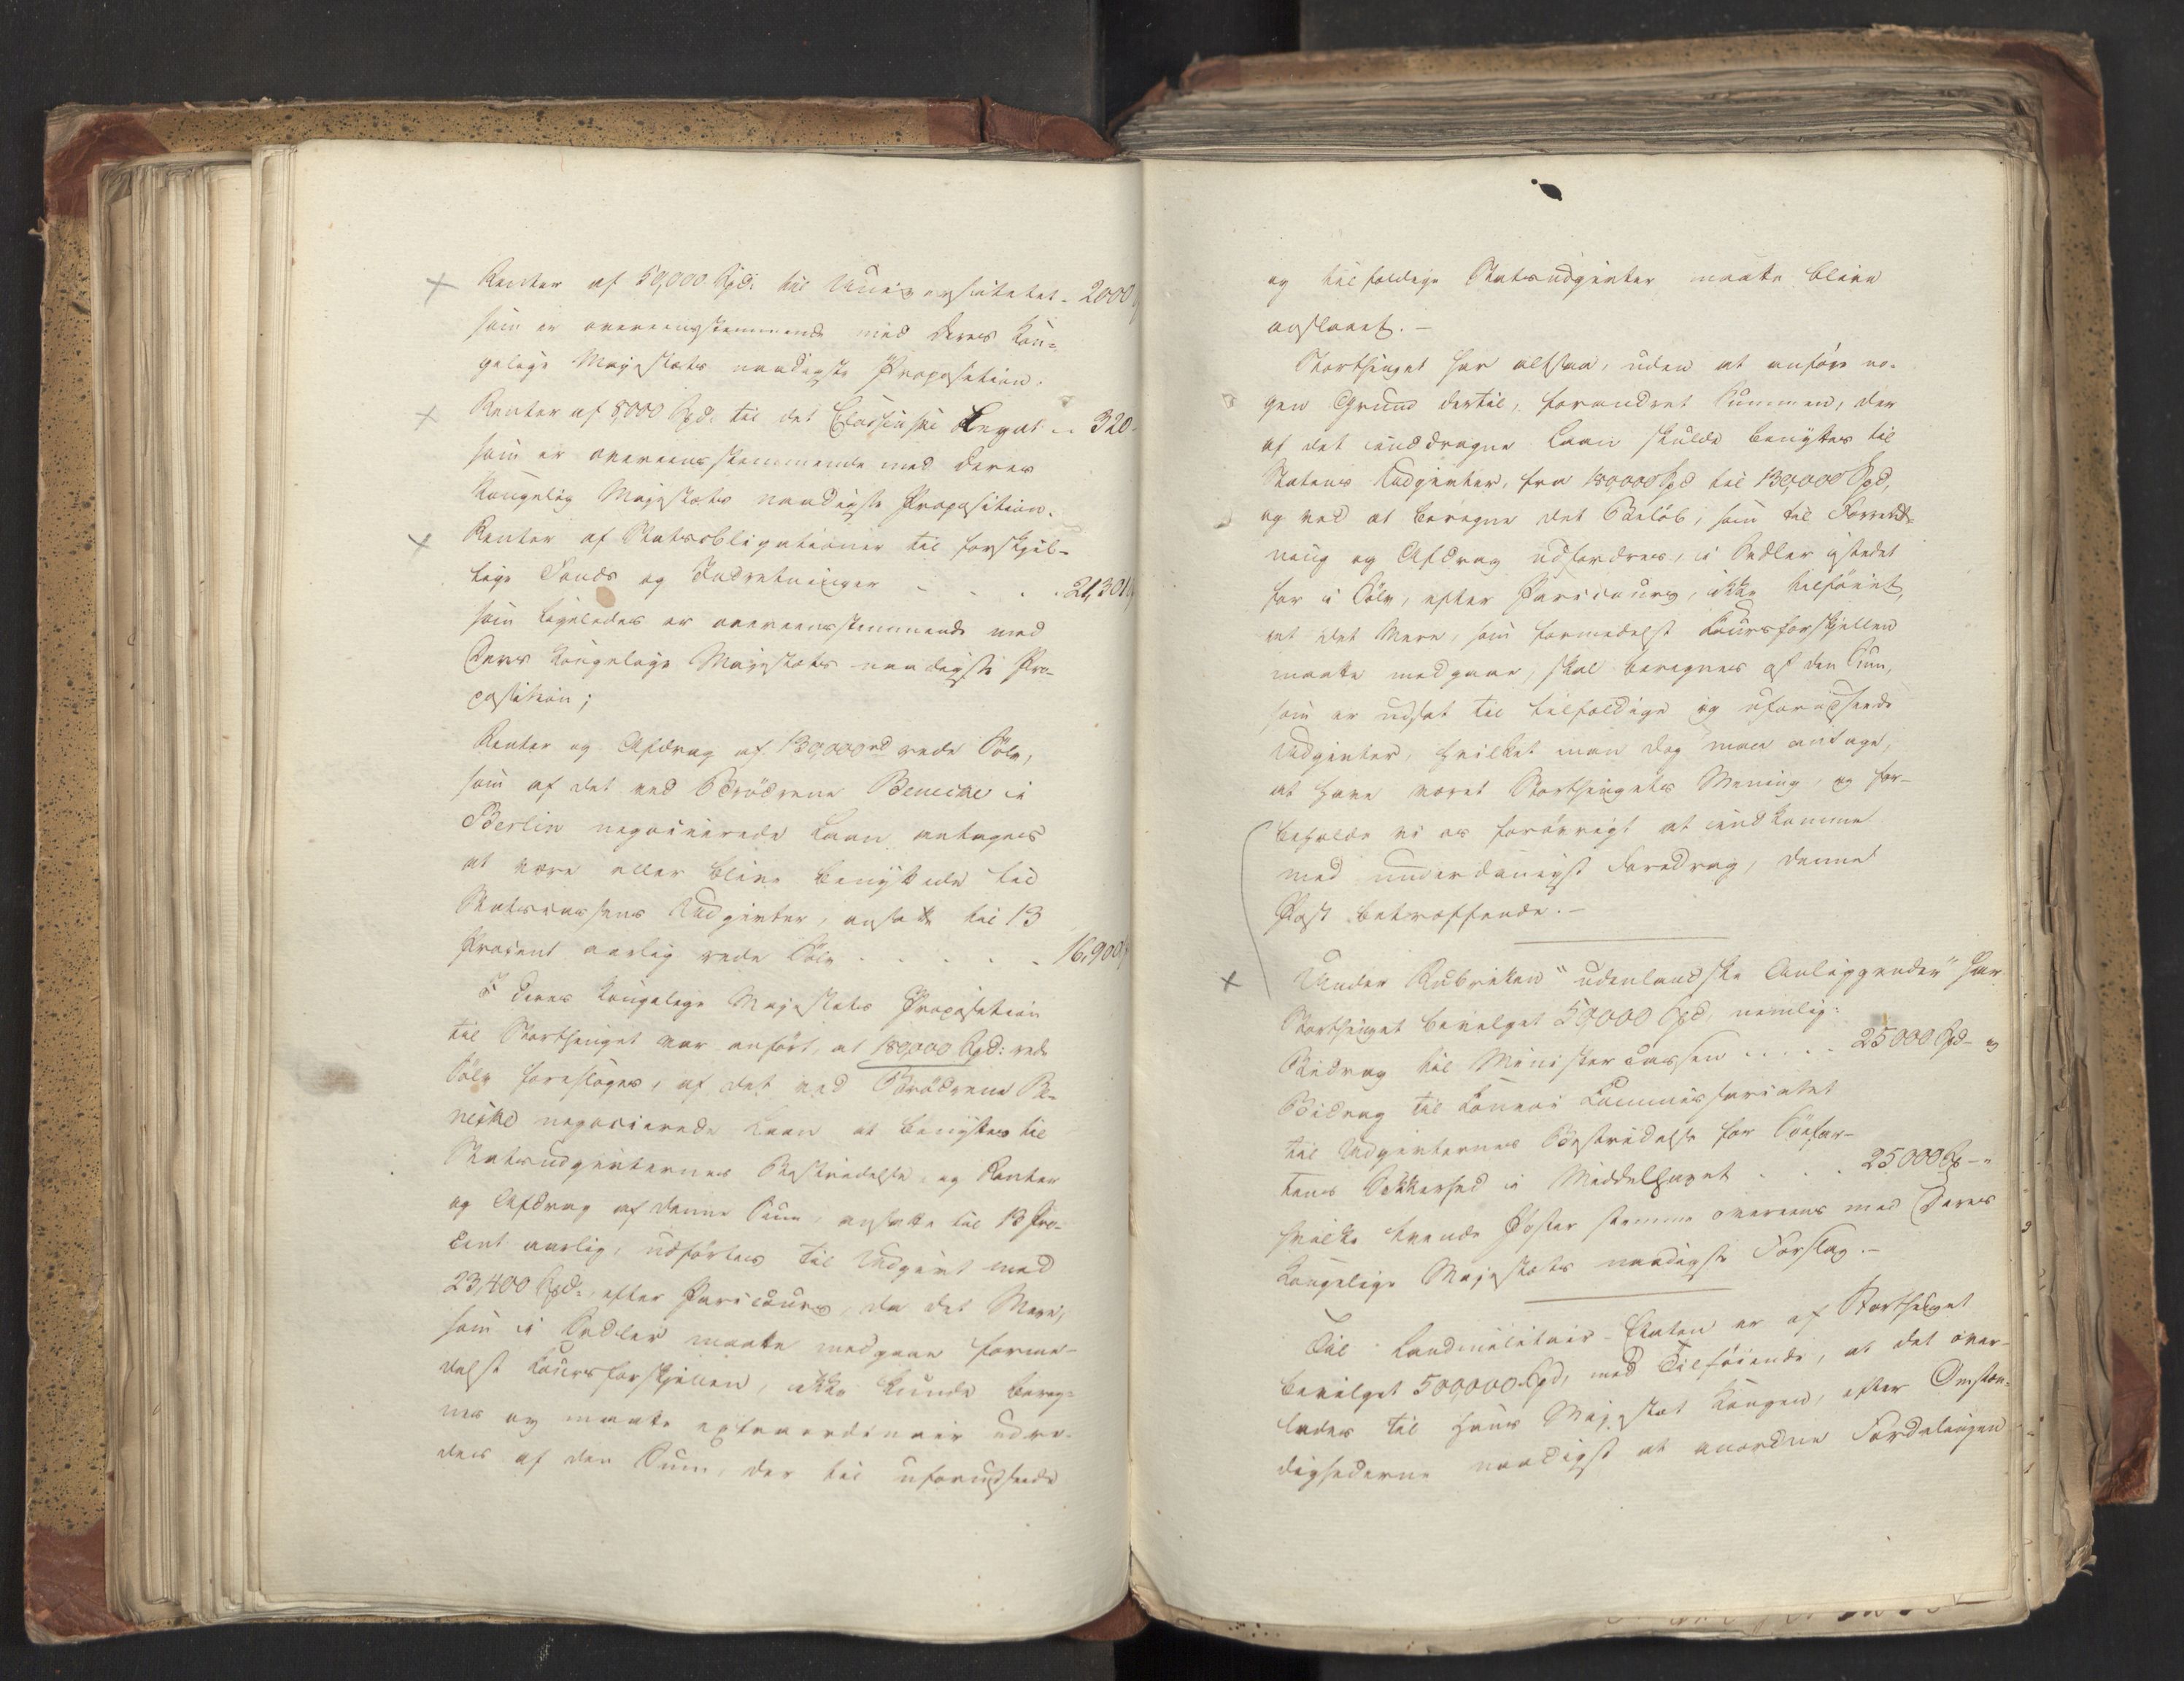 Renter af 50,000 Spd: til Universitetet - 2000
som er overeensstemmende med Deres Kon-
gelige Majestæts naadigste Proposition.
Renter af 8000 Spd: til det Classenske Legat .. 320
som er overeensstemmende med Deres
Kongelig Majestæts naadigste Proposition.
Renter af Statsobligationer til forskjel-
lige Fonds og Indretninger - . . . 21,301
som ligeledes er overeensstemmende med
Deres Kongelige Majestæts naadigste Pro-
position;
Renter og Afdrag af 130,000 rede Sölv,
som af det ved Brödrene Benecke i
Berlin negocierede Laan antages
at være eller blive benyttede til
Statscassens Udgivter, ansatte til 13
Procent aarlig rede Sölv - . . . . 16,900
I Deres Kongelige Majestæts Proposition
til Storthinget var anfört, at 180,000 Spd: rede
Sölv foresloges, af det ved Brödrene Be-
necke negocierede Laan at benyttes til
Statsudgivternes Bestridelse, og Renter
og Afdrag af denne Sum, ansatte til 13 Pro-
cent aarlig, udförtes til Udgivt med
23,400 Spd:, efter Paricours, da det Mere,
som i Sedler maatte medgaae forme-
delst Coursforskjellen, ikke kunde bereg-
nes og maatte extraordinair udre-
des af den Sum, der til uforudseede
og tilfældige Statsudgivter maatte blive
anslaaet. -
Storthinget har altsaa, uden at anföre no-
gen Grund dertil, forandret Summen, der
af det inddragne Laan skulde benyttes til
Statens Udgivter, fra 180,000 Spd til 130,000 Spd,
og ved at beregne det Belöb, som til Forrent-
ning og Afdrag udfordres, i Sedler istedet
for i Sölv, efter Paricours, ikke tilföiet,
at det Mere, som formedelst Coursforskjellen
maatte medgaae, skal beregnes af den Sum,
som er udsat til tilfældige og uforudseede
Udgivter, hvilket man dog maa antage,
at have været Storthingets Mening, og for-
beholde vi os forövrigt at indkomme
med underdanigst Foredrag, denne
Post betræffende. -
Under Rubriken "udenlandske Anliggender" har
Storthinget bevilget 50,000 Spd, nemlig:
Bidrag til Ministercassen . . . . - 25000 Spd - og
Bidrag til Konvoi Commissariatet
til Udgivternes Bestridelse for Söefar-
tens Sikkerhed i Middelhavet . . . 25000 Sp - "
hvilke tvende Poster stemme overeens med Deres
Kongelige Majestæts naadigste Forslag. -
Til Landmilitair-Etaten er af Storthinget
bevilget 500,000 Spd, med Tilföiende, at det over-
lades til Hans Majestæt Kongen, efter Omstæn-
dighederne naadigst at anordne Fordelingen